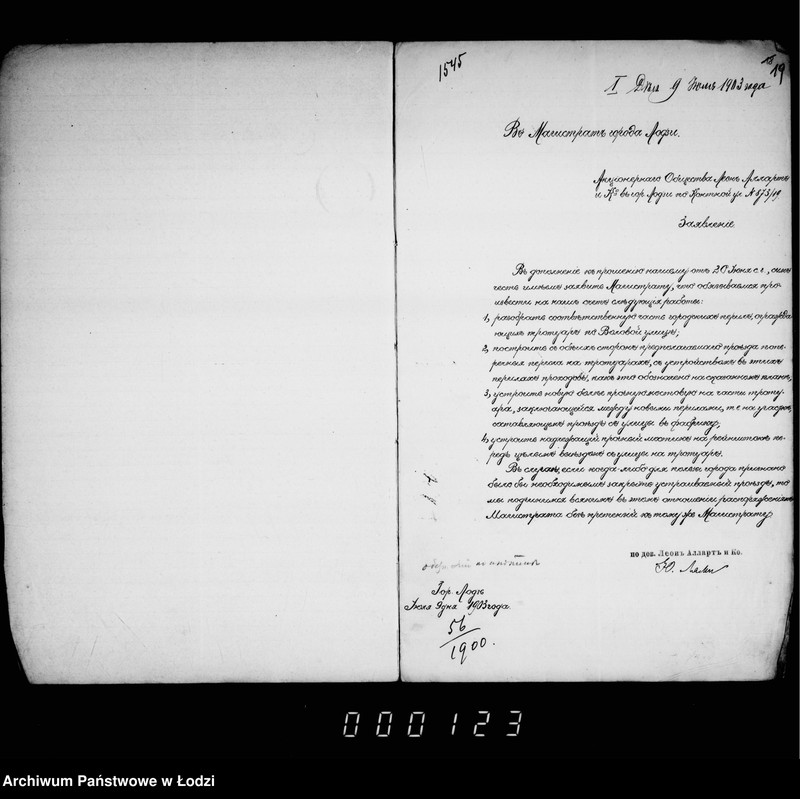 1545
19
I Дня 9 Июля 1903 года
Въ Магистратъ города Лодзи.
Акціонернаго Общества Леонъ Аллартъ
и Кº въ гор. Лодзи по Контной ул. №573/19.
Заявленіе
Въ дополненіе къ прошенію нашему отъ 20 Іюня с. г., симъ
честь имѣемъ заявить Магистрату, что обязываемся про-
извести на нашъ счетъ слѣдующія работы:
1, разобрать соотвѣтственную часть городскихъ перилъ,
щихъ тротуаръ по Волової улицѣ;
2, построить съ обѣихъ сторонъ предполагаемаго проѣзда попе-
речныя перила на тротуарахъ, съ устройствомъ въ этихъ
перилахъ проходовъ, какъ это обозначено на планѣ,
3, устроить новую болѣе прочную мостовую на части троту-
ара, заключающейся между новыми перилами, т. е. на участкѣ,
составляющемъ проѣздъ съ улицы въ фабрику;
4, устроить надлежащій прочный мостикъ на рейнштокъ пе-
редъ цѣлымъ въѣздомъ съ улицы на тротуаръ.
Въ случаѣ, если когда либо для пользы города признано
было бы необходимымъ закрыть устраиваемый проѣздъ, то
мы подчинимся всякимъ въ этомъ отношеніи распоряженіямъ
Магистрата безъ претензій къ тому же Магистрату.
по дов. Леонъ Аллартъ и Ко.
Гор. Лодзь
Іюля 9 дня 1903 года.
56/1900.
000123
Archiwum Państwowe w Łodzi